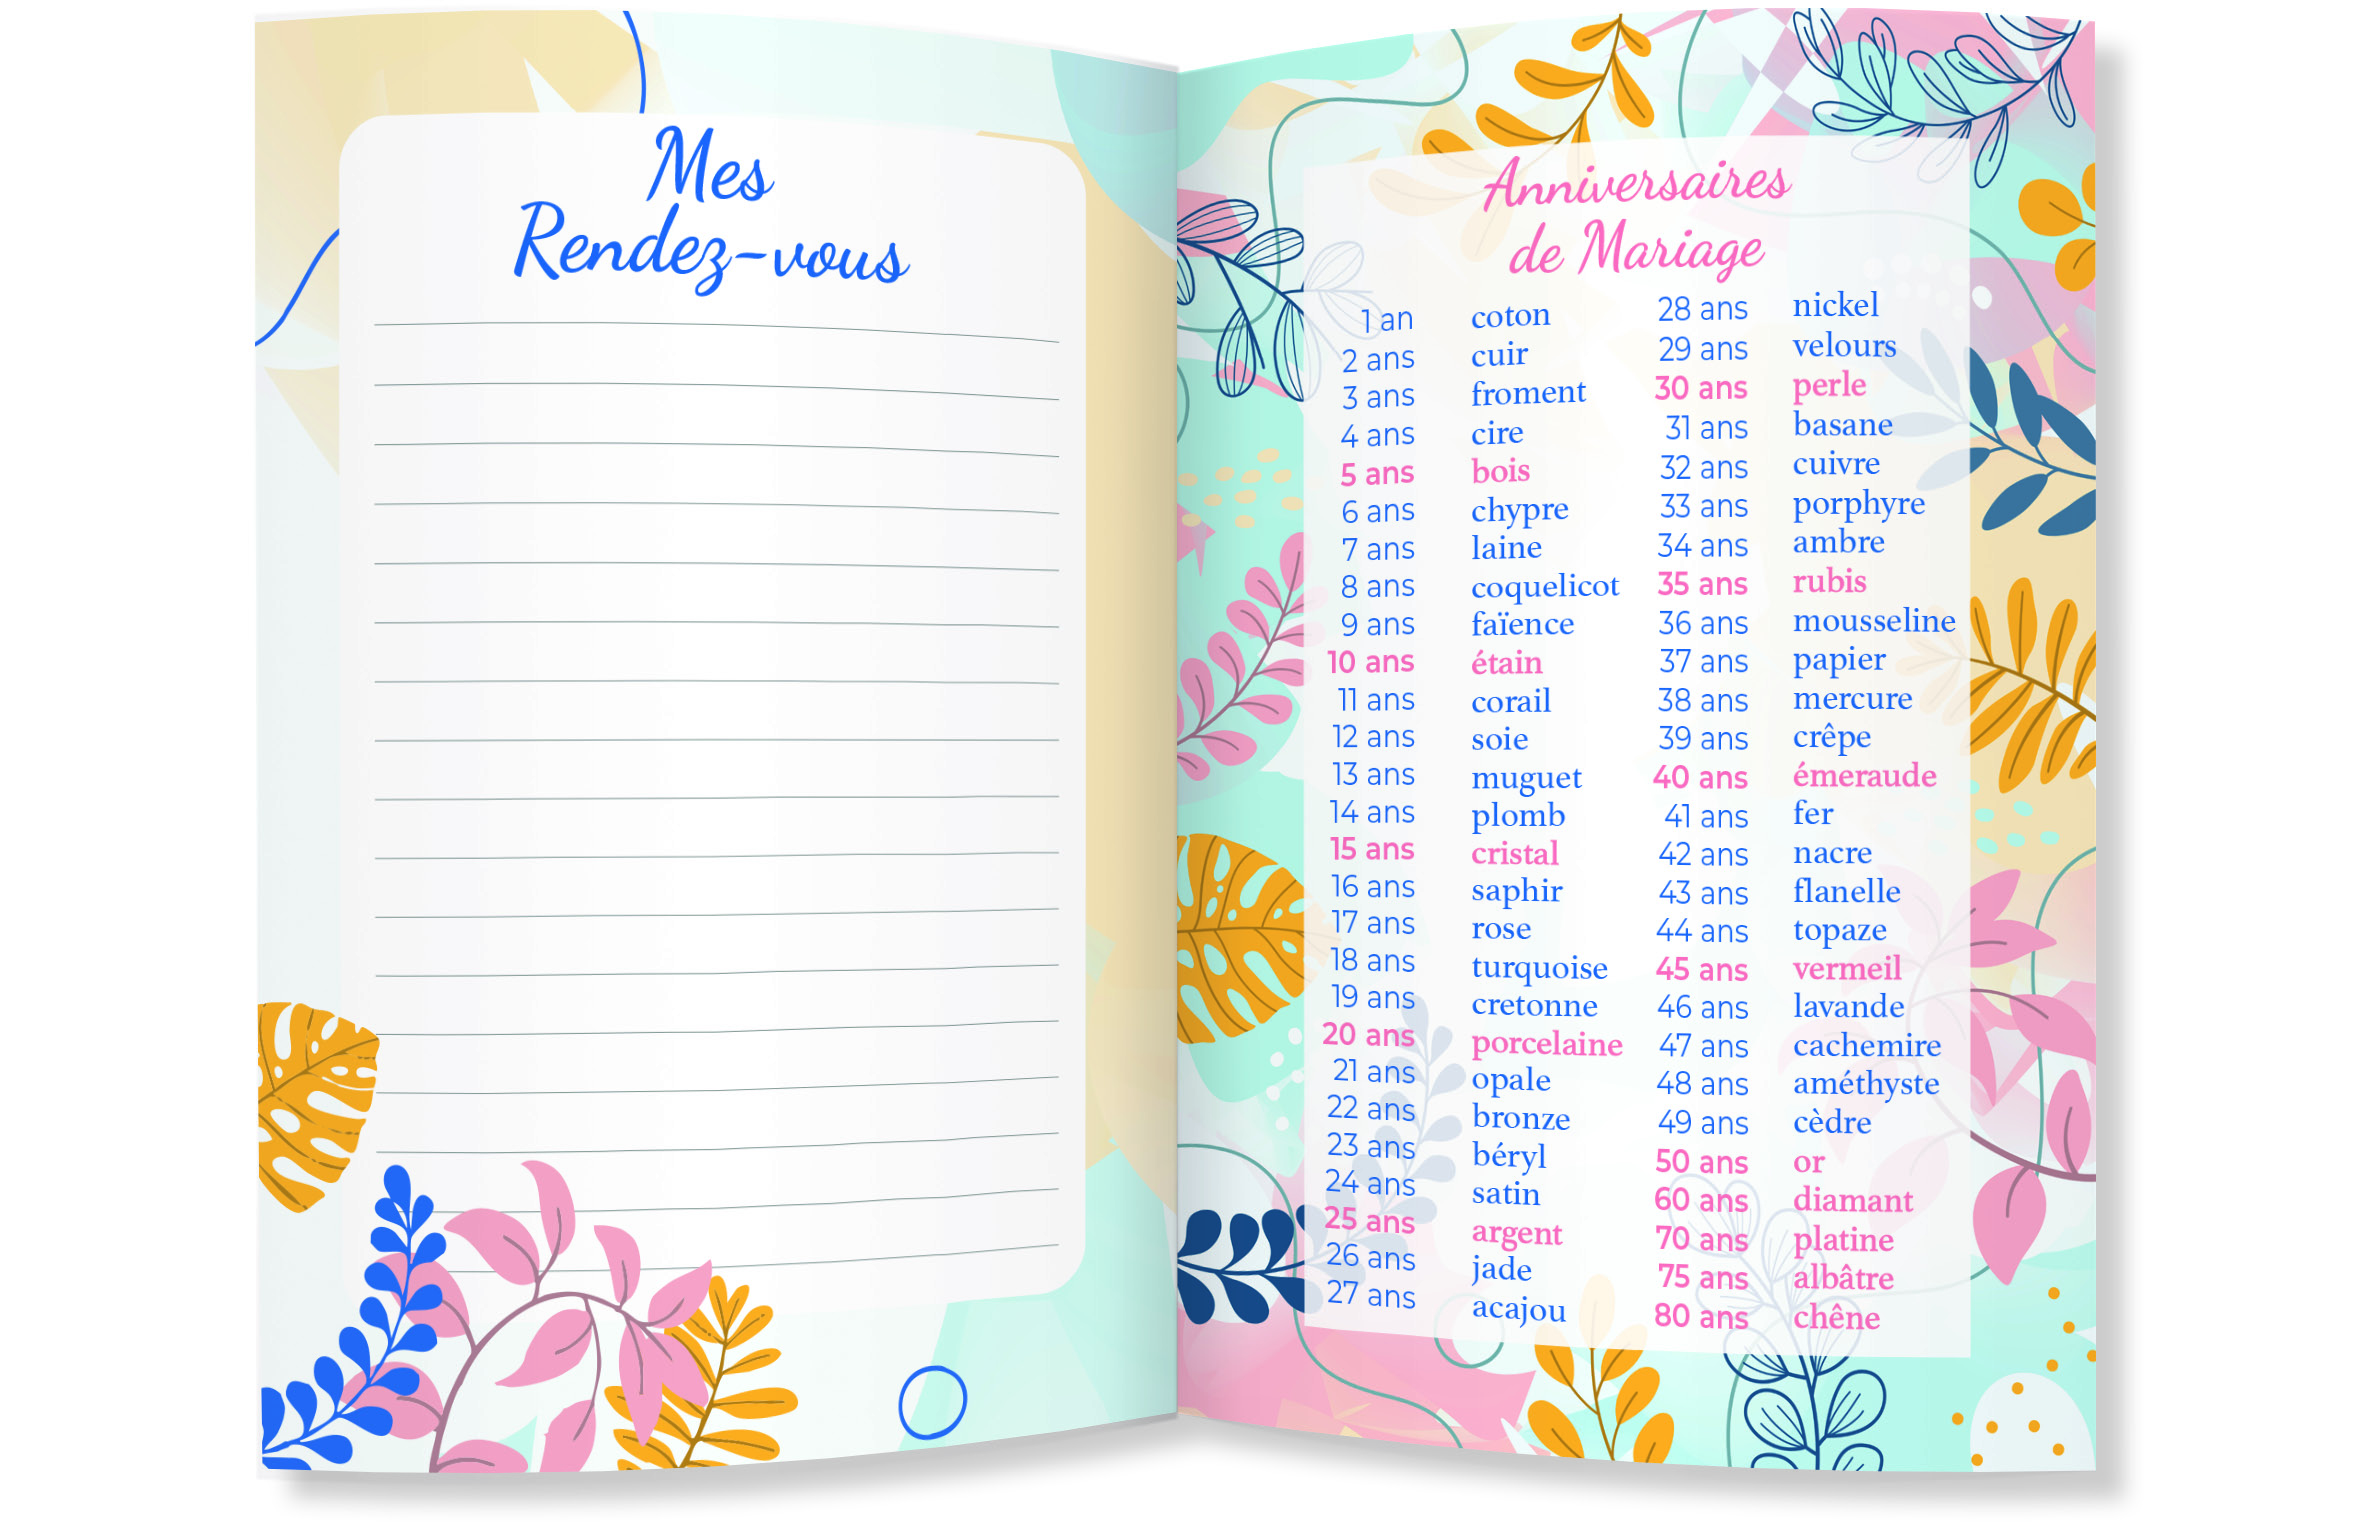 Mes
Rendez-vous
Anniversaires
de Mariage
1 an coton
2 ans cuir
3 ans froment
4 ans cire
5 ans bois
6 ans chypre
7 ans laine
8 ans coquelicot
9 ans faïence
10 ans étain
11 ans corail
12 ans soie
13 ans muguet
14 ans plomb
15 ans cristal
16 ans saphir
17 ans rose
18 ans turquoise
19 ans cretonne
20 ans porcelaine
21 ans opale
22 ans bronze
23 ans béryl
24 ans satin
25 ans argent
26 ans jade
27 ans acajou
28 ans nickel
29 ans velours
30 ans perle
31 ans basane
32 ans cuivre
33 ans porphyre
34 ans ambre
35 ans rubis
36 ans mousseline
37 ans papier
38 ans mercure
39 ans crêpe
40 ans émeraude
41 ans fer
42 ans nacre
43 ans flanelle
44 ans topaze
45 ans vermeil
46 ans lavande
47 ans cachemire
48 ans améthyste
49 ans cèdre
50 ans or
60 ans diamant
70 ans platine
75 ans albâtre
80 ans chêne